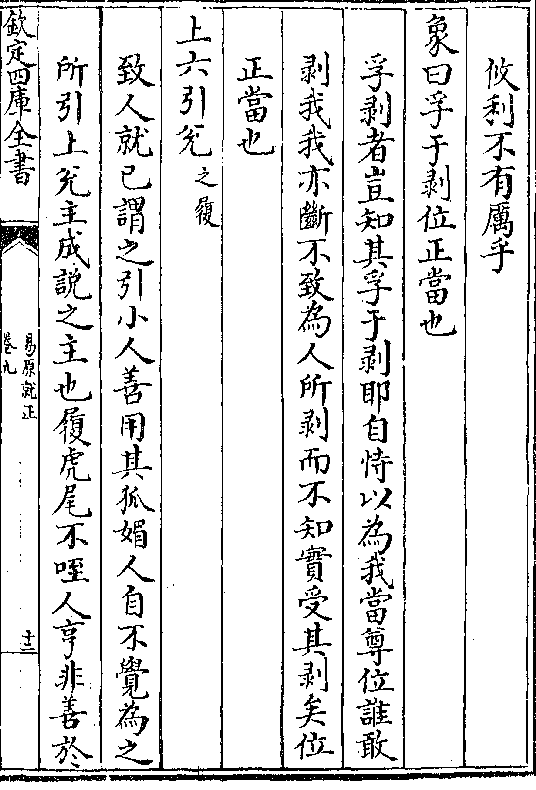 攸利不有厲乎
象曰孚于剥位正當也
孚剥者豈知其孚于剥耶自恃以為我當尊位誰敢
剥我我亦斷不致為人所剥而不知實受其剥矣位
正當也
上六引兊之履
致人就已謂之引小人善用其狐媚人自不覺為之
所引上兊主成説之主也履虎尾不咥人亨非善於
欽定四庫全書
易原就正
卷九
十二